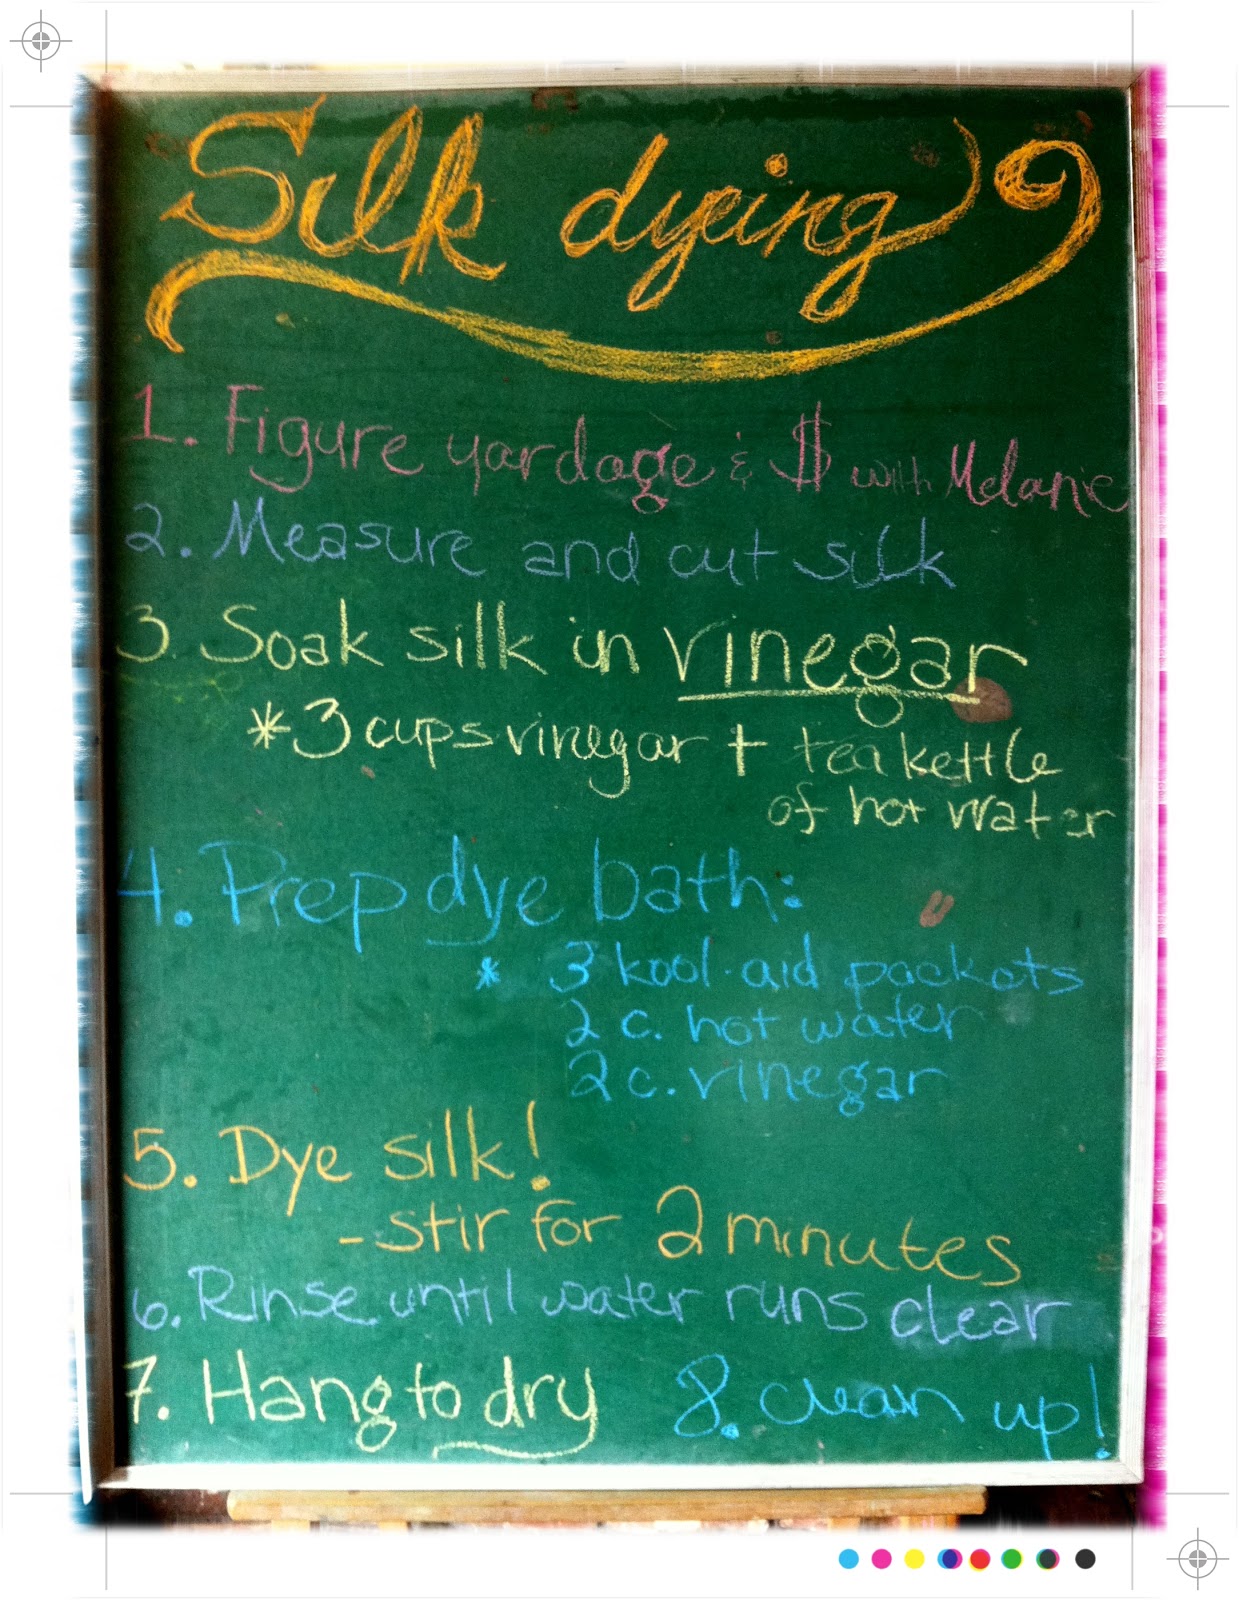 Silk dyeing
1. Figure yardage & $ with Melanie
2. Measure and cut silk
3 Soak silk in vinegar
*3 cups vinegar + tea kettle
of hot water
4. Prep dye bath:
* 3 kool-aid packets
2 c. hot water
2 c. vinegar
5. Dye silk!
- stir for 2 minutes
6. Rinse until water runs clear
7. Hang to dry 8. clean up!